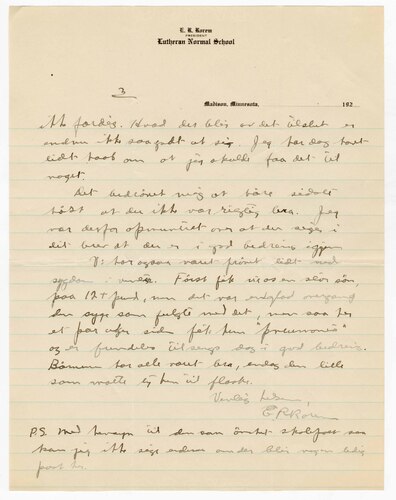 E. R. Rorem
PRESIDENT
Lutheran Normal School
3
Madison, Minnesota, 192
ikke færdig. Hvad der blir av det tilslut er
endnu ikke saa godt at si. Jeg har dog havt
lidt haab om at jeg skulde faa det til
noget.
Det bedrøvet mig at høre sidste
høst at du ikke var rigtig bra. Jeg
var derfor opmuntret over at du siger i
dit brev at du er i god bedring igjen.
Vi har ogsaa været prøvet lidt med
sygdom i vinter. Først fik vi os en stor søn,
paa 12 pund, men det var
den syge som fulgte med det, men saa for
et par uker siden fik hun "pneumonia"
og er fremdeles tilsengs dog i god bedring.
Børnene har alle været bra, endog den lille
som maatte ty hen til flaske.
Venlig hilsen,
E R Rorem
P.S. Med hensyn til den som ønsker skolepost saa
kan jeg ikke sige endnu om der blir nogen ledig
post her.